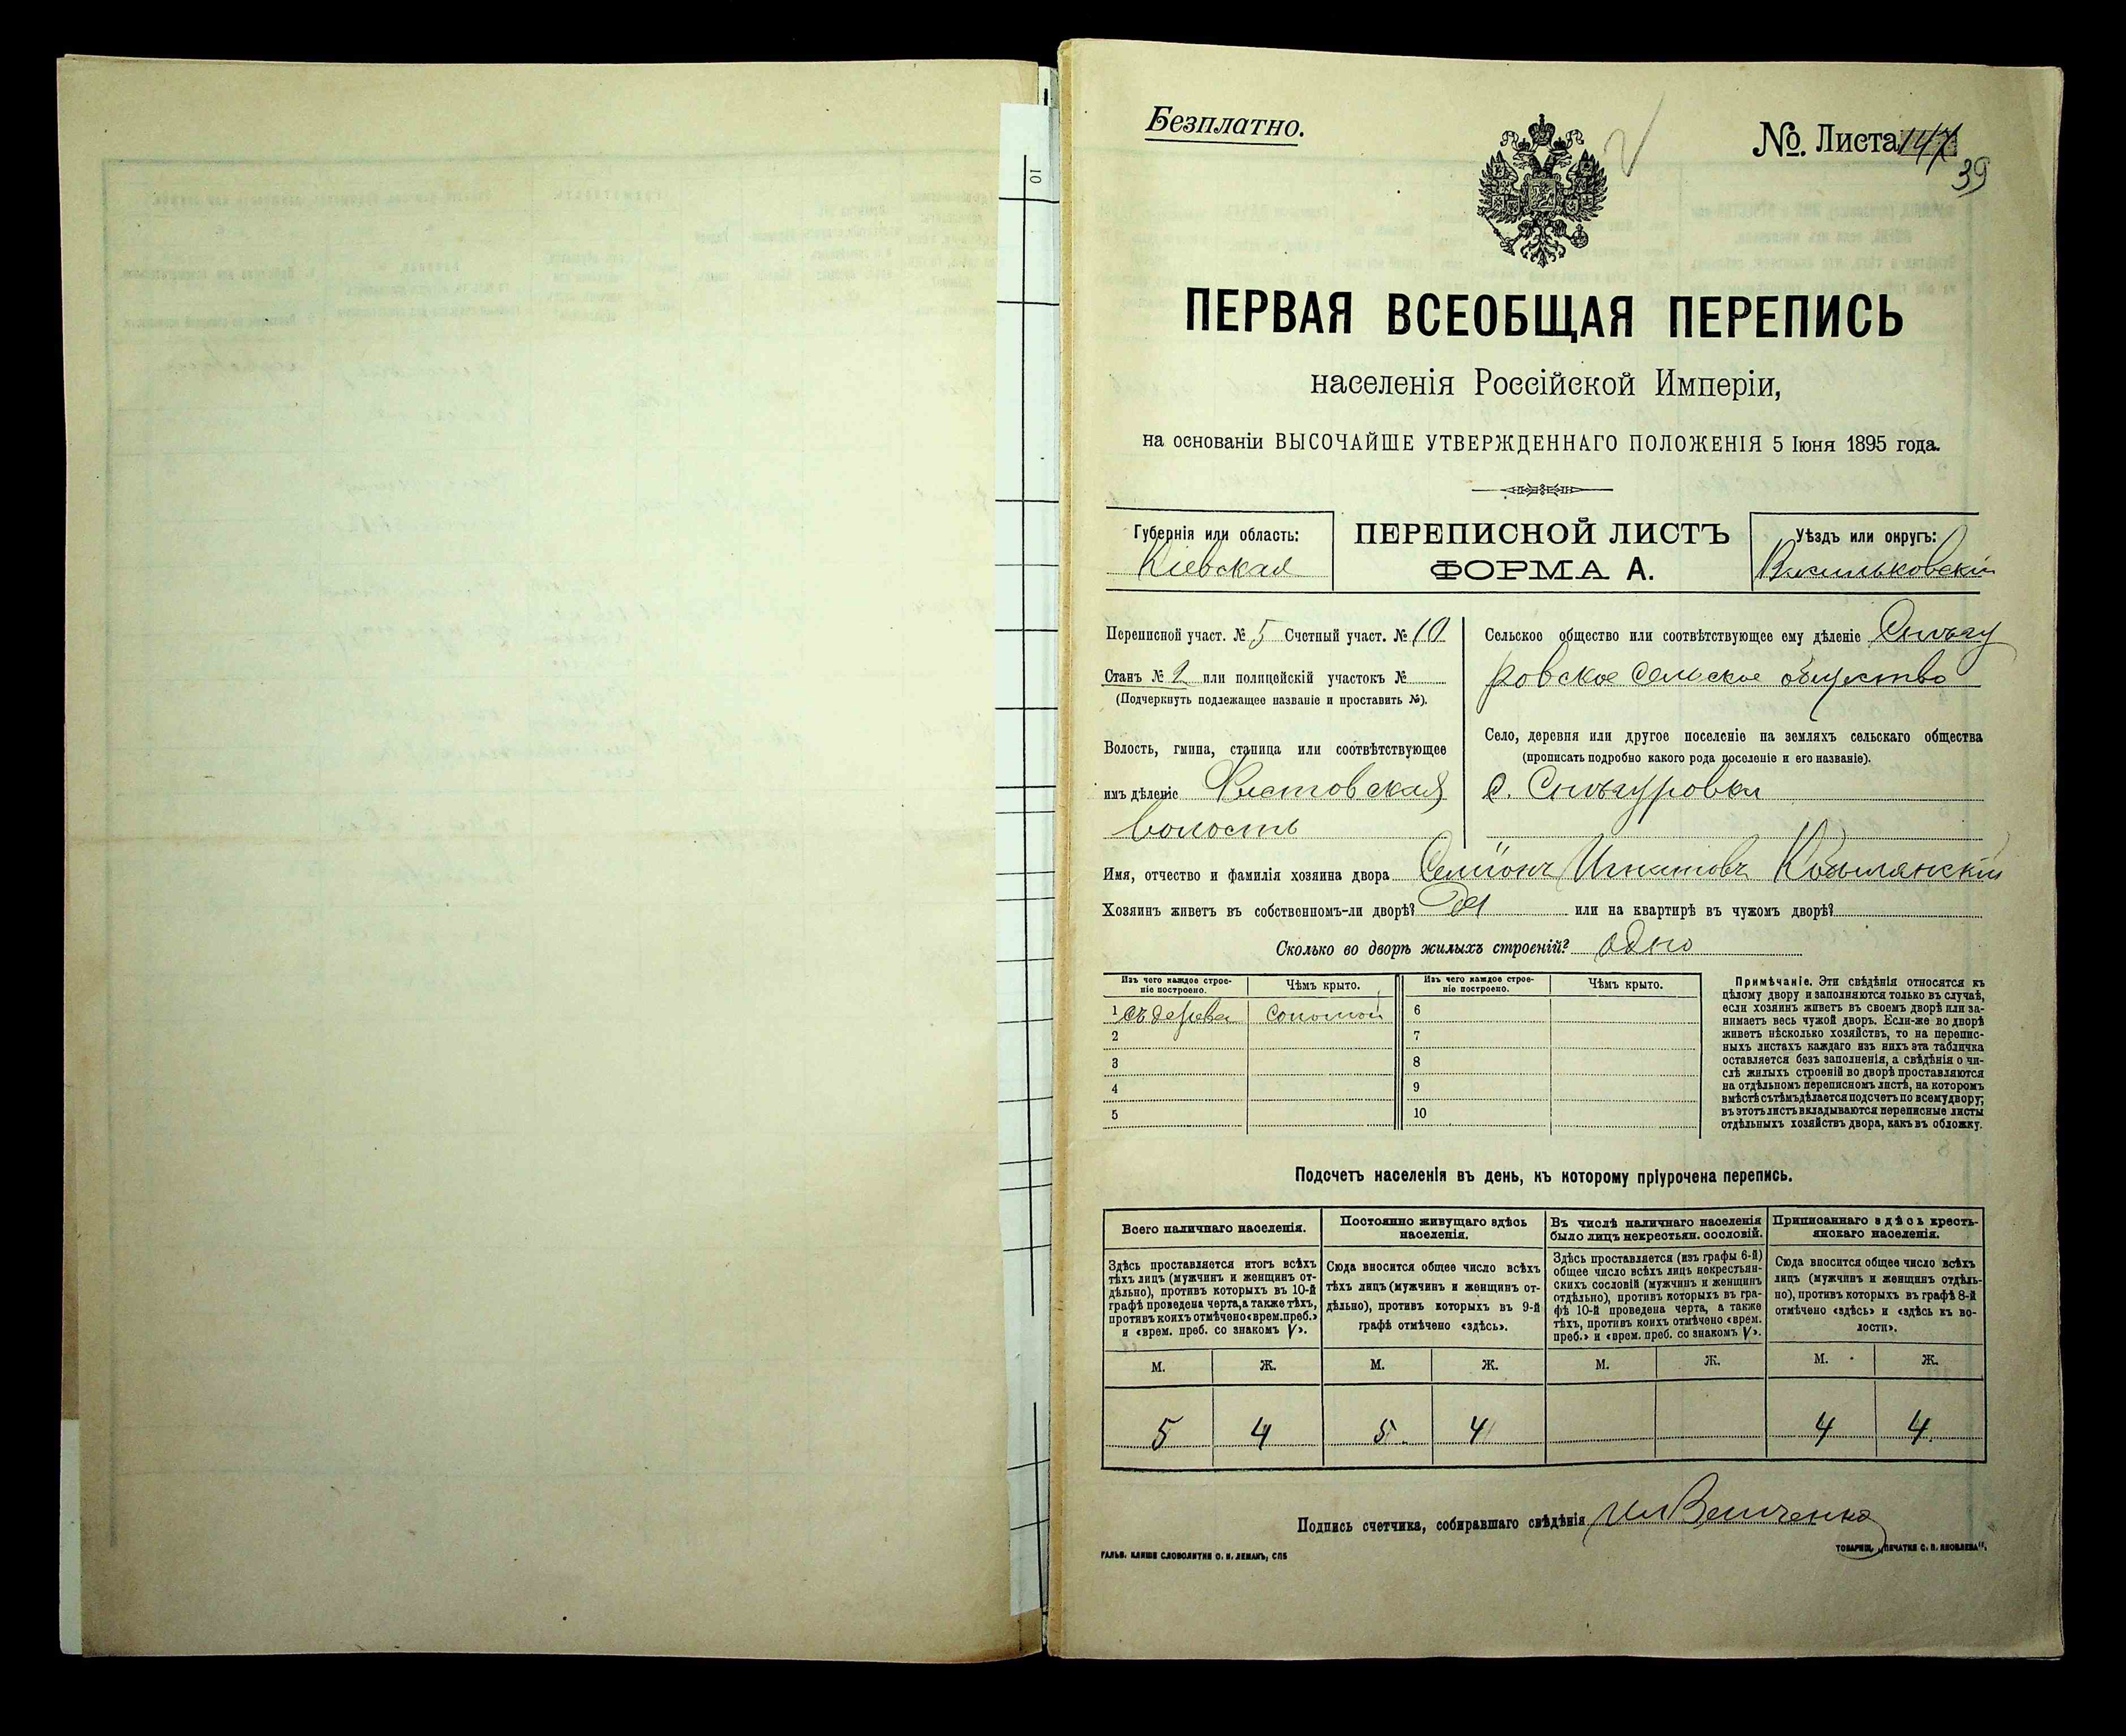 Безплатно.
№. Листа 147
39
ПЕРВАЯ ВСЕОБЩАЯ ПЕРЕПИСЬ
населенія Россійской Имперіи,
на основаніи ВЫСОЧАЙШЕ УТВЕРЖДЕННАГО ПОЛОЖЕНІЯ 5 Іюня 1895 года.
Губернія или область:
Кіевская
ПЕРЕПИСНОЙ ЛИСТЪ
ФОРМА А.
Уѣздъ или округъ:
Васильковскій
Переписной участ. № 5 Счетный участ. № 10
Станъ № 2 или полицейскій участокъ №
(Подчеркнуть подлежащее названіе и проставить №).
Волость, гмина, станица или соотвѣтствующее
имъ дѣленіе
волость
Сельское общество или соотвѣтствующее ему дѣленіе Снѣгу
ровское сельское общество
Село, деревня или другое поселеніе на земляхъ сельскаго общества
(прописать подробно какого рода поселеніе и его названіе).
с. Снѣгуровка
Имя, отчество и фамилія хозяина двора Семіонъ Игнатовъ Кобылянскій
Хозяинъ живетъ въ собственномъ-ли дворѣ? Да или на квартирѣ въ чужомъ дворѣ?
Сколько во дворѣ жилыхъ строеній? одно
Изъ чего каждое строе-
ніе построено.
Чѣмъ крыто.
Изъ чего каждое строе-
ніе построено.
Чѣмъ крыто.
1 съ дерева соломой 6
2 7
3 8
4 9
5 10
Примѣчаніе. Эти свѣдѣнія относятся къ
цѣлому двору и заполняются только въ случаѣ,
если хозяинъ живетъ въ своемъ дворѣ или за-
нимаетъ весь чужой дворъ. Если-же во дворѣ
живетъ нѣсколько хозяйствъ, то на перепис-
ныхъ листахъ каждаго изъ нихъ эта табличка
оставляется безъ заполненія, а свѣдѣнія о чи-
слѣ жилыхъ строеній во дворѣ проставляются
на отдѣльномъ переписномъ листѣ, на которомъ
вмѣстѣ съ тѣмъ дѣлается подсчетъ по всему двору;
въ этотъ листъ вкладываются переписные листы
отдѣльныхъ хозяйствъ двора, какъ въ обложку.
Подсчетъ населенія въ день, къ которому пріурочена перепись.
Всего наличнаго населенія.
Здѣсь проставляется итогъ всѣхъ
тѣхъ лицъ (мужчинъ и женщинъ от-
дѣльно), противъ которыхъ въ 10-й
графѣ проведена черта, а также тѣхъ,
противъ коихъ отмѣчено «врем. преб.»
и «врем. преб. со знакомъ V».
Постоянно живущаго здѣсь
населенія.
Сюда вносится общее число всѣхъ
тѣхъ лицъ (мужчинъ и женщинъ от-
дѣльно), противъ которыхъ въ 9-й
графѣ отмѣчено «здѣсь».
Въ числѣ наличнаго населенія
было лицъ некрестьян. сословій.
Здѣсь проставляется (изъ графы 6-й)
общее число всѣхъ лицъ некрестьян-
скихъ сословій (мужчинъ и женщинъ
отдѣльно), противъ которыхъ въ гра-
фѣ 10-й проведена черта, а также
тѣхъ, противъ коихъ отмѣчено «врем.
преб.» и «врем. преб. со знакомъ V».
Приписаннаго здѣсь кресть-
янскаго населенія.
Сюда вносится общее число всѣхъ
лицъ (мужчинъ и женщинъ отдѣль-
но), противъ которыхъ въ графѣ 8-й
отмѣчено «здѣсь» и «здѣсь къ во-
лости».
М. Ж. М. Ж. М. Ж. М. Ж.
5 4 5 4 4 4
Подпись счетчика, собиравшаго свѣдѣнія
ГАЛЬВ. КЛИШЕ СЛОВОЛИТНИ О. И. ЛЕМАНЪ, СПБ
ТОВАРИЩ. „ПЕЧАТНЯ С. П. ЯКОВЛЕВА“.
10